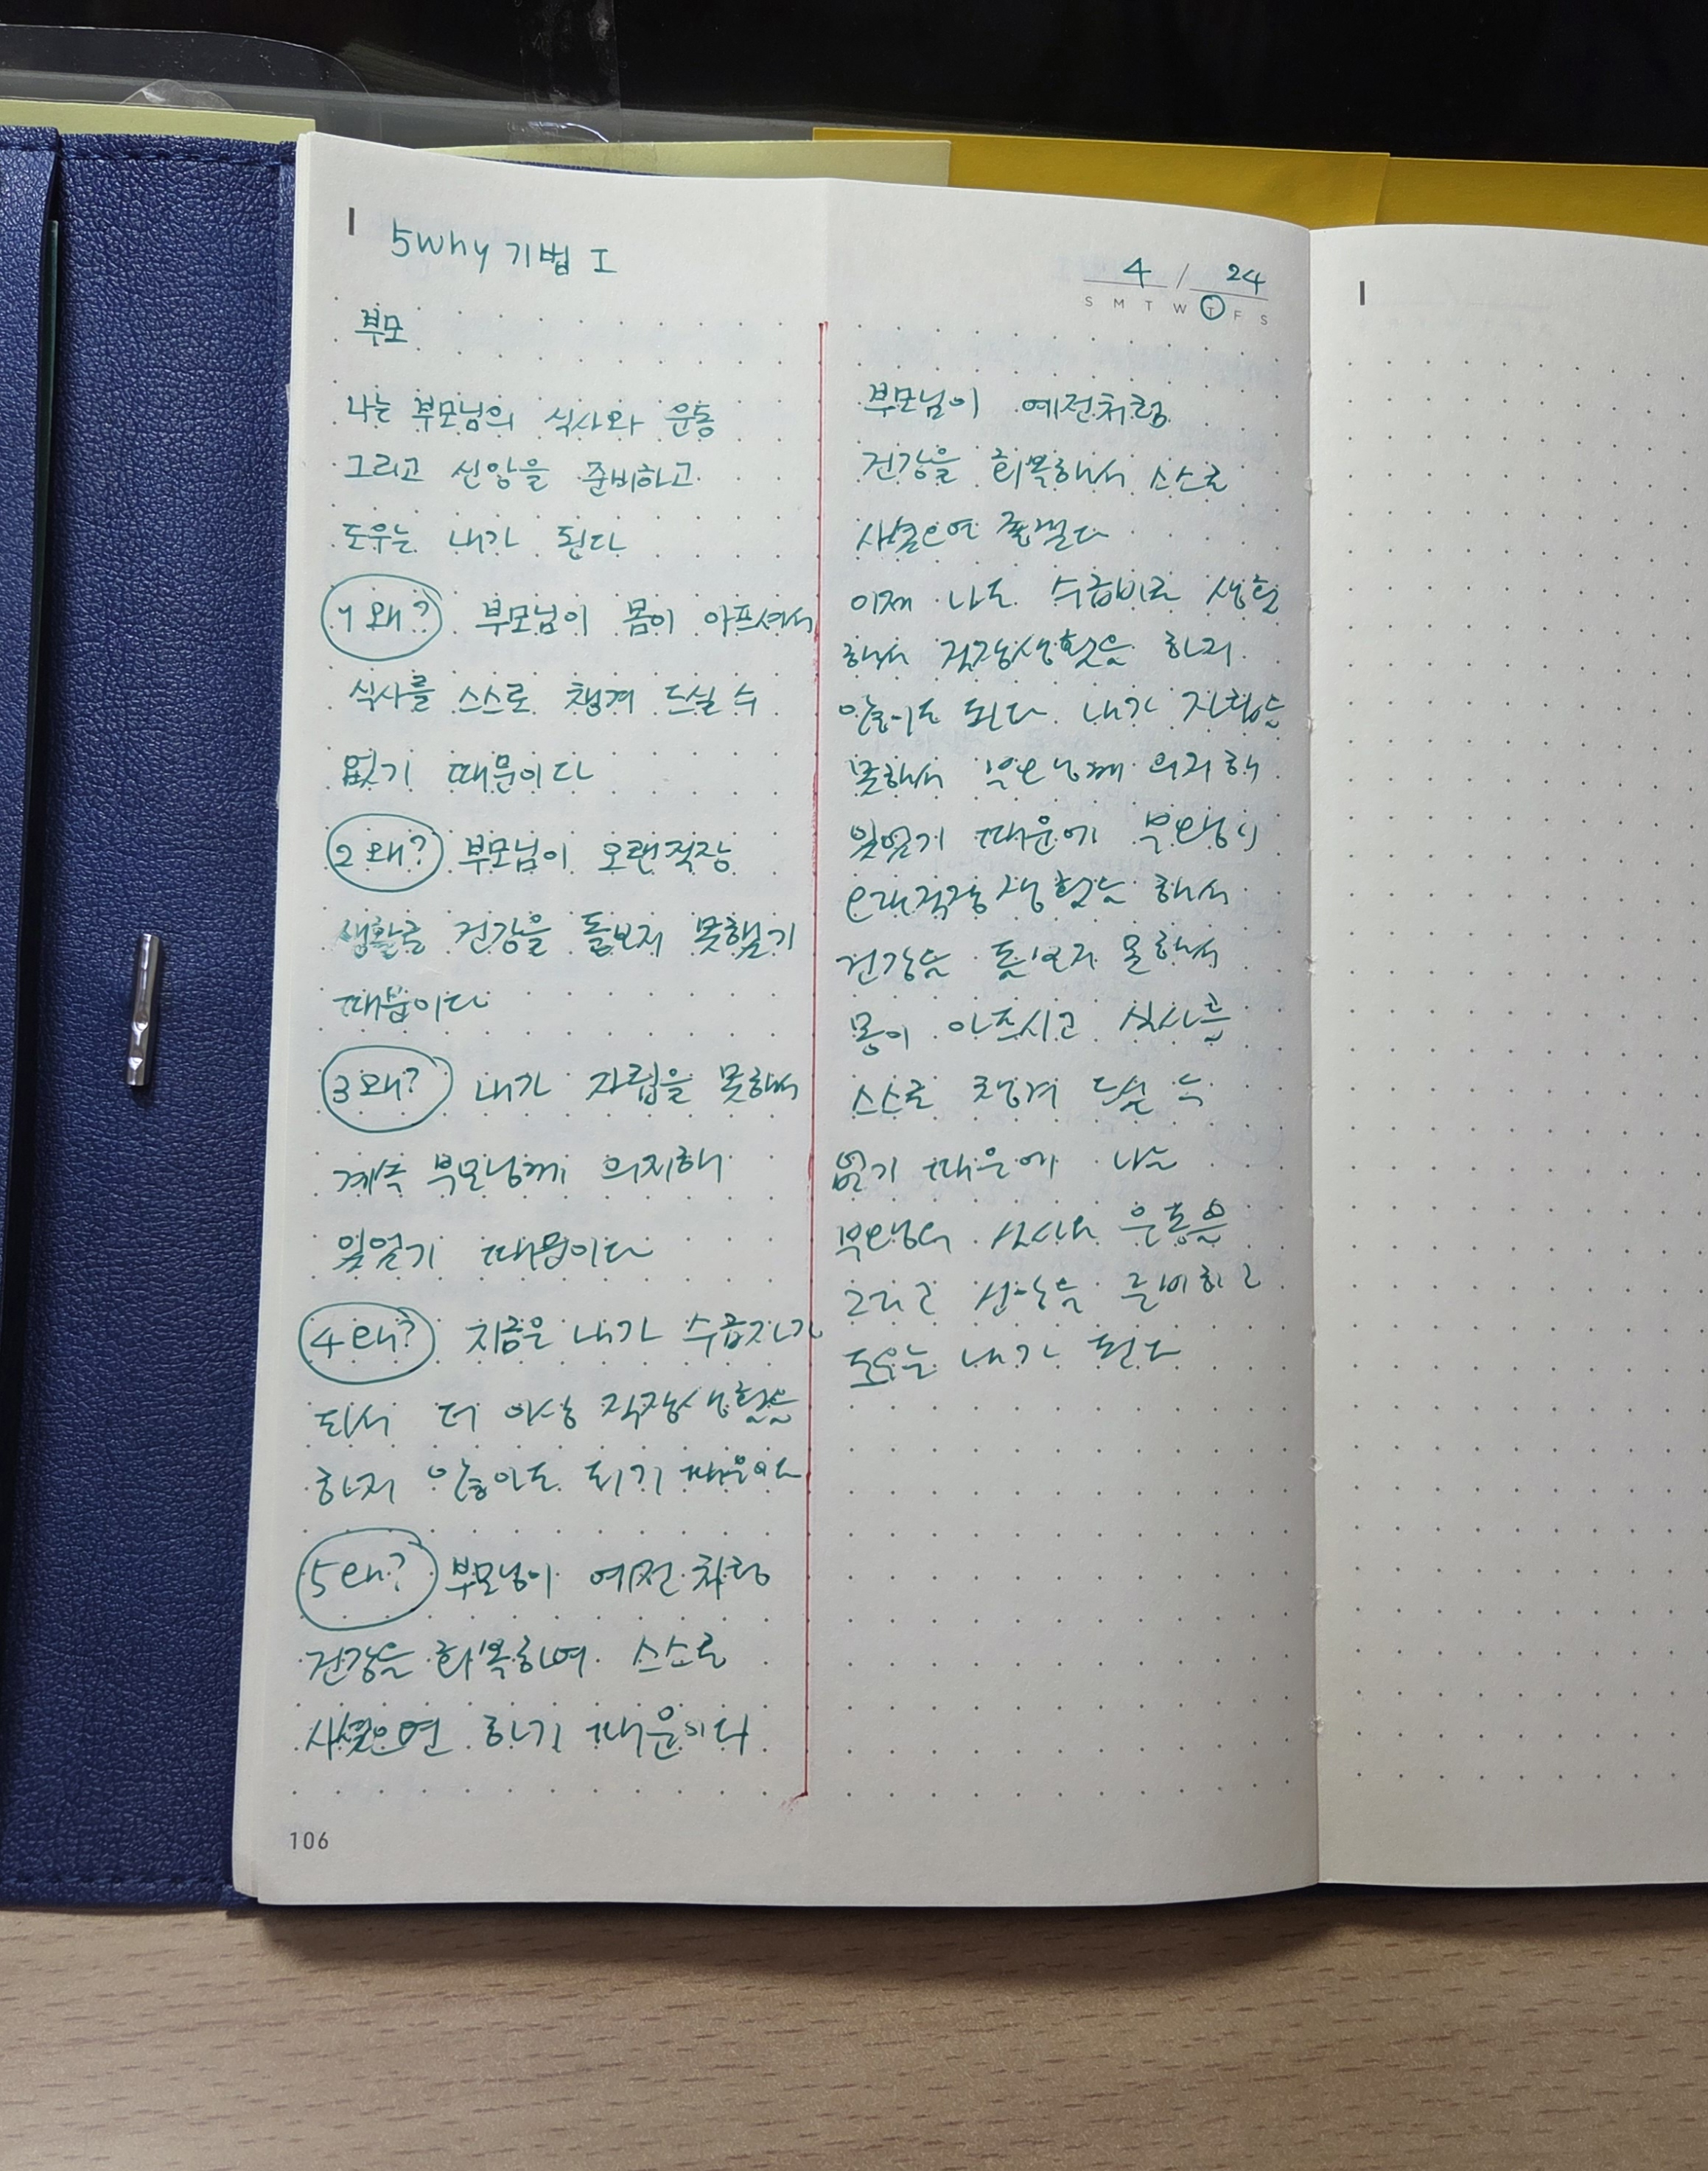 5why 기법 I
4 / 24
S M T W T F S
부모
나는 부모님의 식사와 운동
그리고 신앙을 준비하고
도우는 내가 된다
1 왜? 부모님이 몸이 아프셔서
식사를 스스로 챙겨 드실 수
없기 때문이다
2 왜? 부모님이 오랜직장
생활로 건강을 돌보지 못했기
때문이다
3 왜? 내가 자립을 못해서
계속 부모님께 의지해
있었기 때문이다
4 왜? 지금은 내가 수급자가
되서 더 이상 직장생활을
하지 않아도 되기 때문이다
5 왜? 부모님이 예전 처럼
건강을 회복하여 스스로
사셨으면 하기 때문이다
부모님이 예전처럼
건강을 회복해서 스스로
사셨으면 좋겠다
이제 나도 수급비로 생활
해서 직장생활을 하지
않아도 된다 내가 자립을
못해서 부모님께 의지해
있었기 때문에 부모님이
오래직장생활을 해서
건강을 돌보지 못해서
몸이 아프시고 식사를
스스로 챙겨 드실 수
없기 때문에 나는
부모님의 식사와 운동을
그리고 신앙을 준비하고
도우는 내가 된다
106